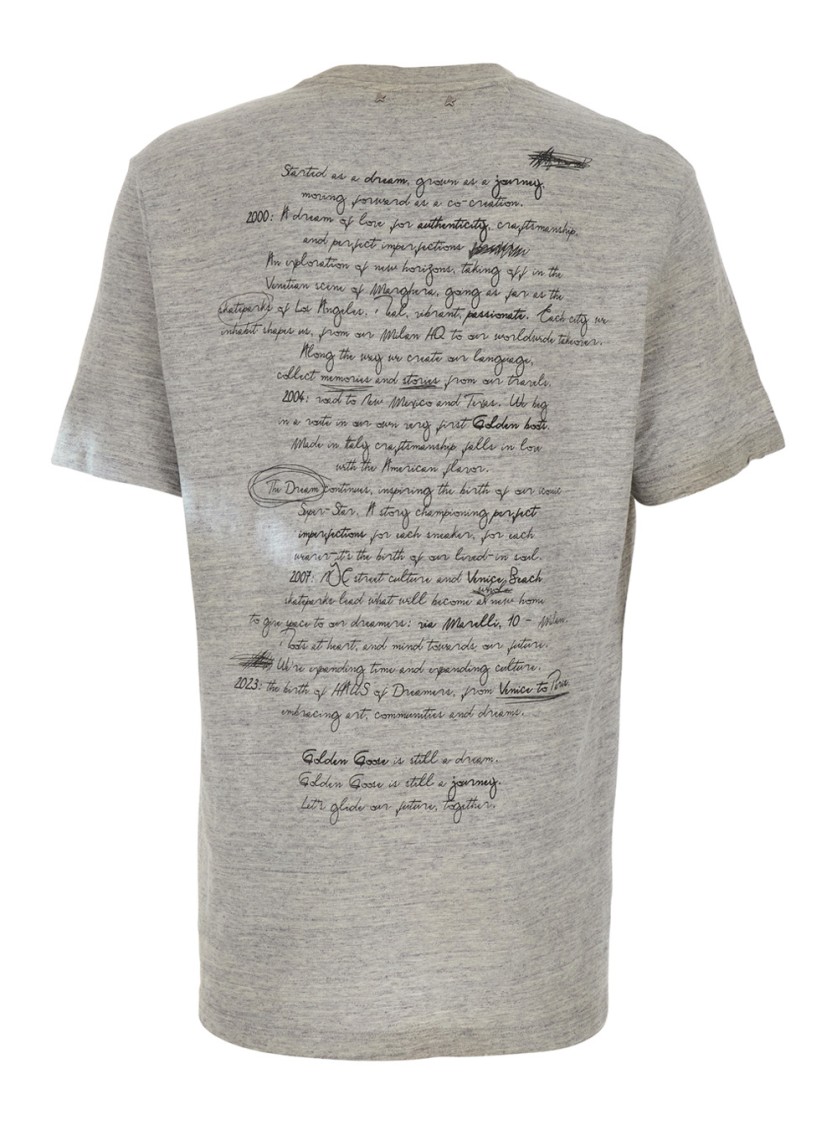 Started as a dream, grown as a journey,
moving forward as a co-creation.
2000: A dream of love for authenticity, craftsmanship,
and perfect imperfections
An exploration of new horizons, taking off in the
Venetian scene of Marghera, going as far as the
skateparks of Los Angeles. Real, vibrant, passionate. Each city we
inhabit shapes us, from our Milan HQ to our worldwide takeover.
Along the way we create our language,
collect memories and stories from our travels.
2004: road to New Mexico and Texas. We beg
in a route in our own very first Golden boots.
Made in Italy craftsmanship falls in love
with the American flavor.
The Dream continues, inspiring the birth of our iconic
Super-Star. A story championing perfect
imperfections for each sneaker, for each
wearer-it's the birth of our lived-in soul.
2007: street culture and Venice Beach
skateparks lead what will become a whole new home
to give space to our dreamers: via Morelli, 10 - Milan.
Roots at heart, and mind towards our future.
We're expanding time and expanding culture.
2023: the birth of HAUS of Dreamers, from Venice to
embracing art, communities and dreams.
Golden Goose is still a dream.
Golden Goose is still a journey.
Let's glide our future, together.